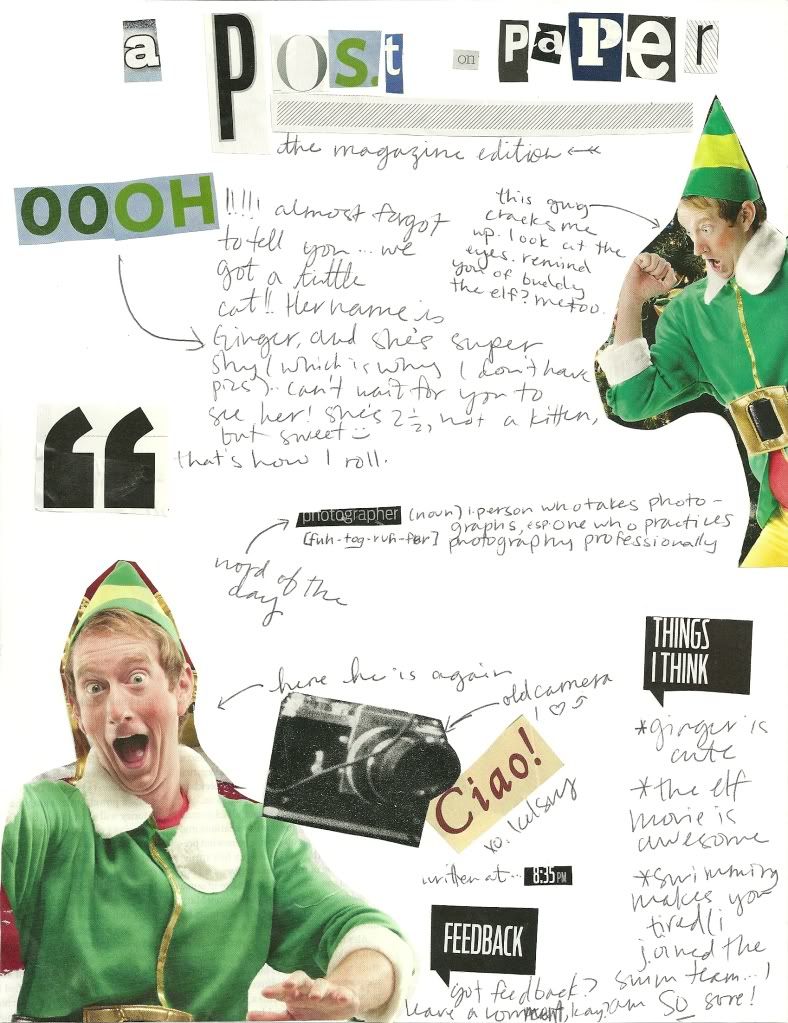 a Post on PAPer
the magazine edition
OOOH !!!!! almost forgot
to tell you... we
got a little
cat!! Her name is
Ginger, and she's super
shy (which is why I don't have
pics).. can't wait for you to
see her! she's 2 1/2, not a kitten,
but sweet :)
that's how I roll.
this guy
cracks me
up. look at the
eyes. remind
you of buddy
the elf? me too.
“
photographer (noun) : person who takes photo-
graphs, esp. one who practices
[fuh-tog-ruh-fer] photography professionally
word of the
day
here he is again
old camera
I ♡ it
Ciao!
xo. kelsey
written at... 8:35 PM
THINGS
I THINK
*ginger is
cute
*the elf
movie is
awesome
*swimming
makes you
tired (i
joined the
swim team... I
am SO sore!
FEEDBACK
got feedback?
leave a comment, kay?